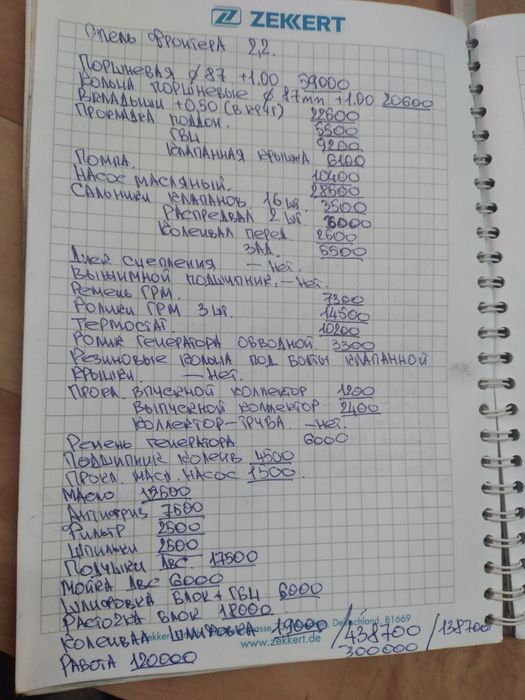 ZEKKERT
Опель Фронтера 2,2.
Поршневая ф 87 +1.00 39000
Кольца поршневые ф 87mm +1.00 20600
Вкладыши +0,50 (в круг) 22600
Прокладка поддон. 5500
ГВЦ 9200
Клапанная крышка 6100
Помпа. 10400
Насос масляный. 28500
Сальники клапанов 16 шт. 3500
распредвал 2 шт. 6000
Коленвал перед 2600
зад. 5500
Диск сцепления — нет.
Выжимной подшипник. — нет.
Ремень ГРМ. 7300
Ролики ГРМ 3 шт. 14500
Термостат. 10200
Ролик генератора обводной 3300
Резиновые кольца под болты клапанной
крышки. — нет.
Прокл. впускной коллектор 1200
выпускной коллектор 2400
коллектор-труба. — нет.
Ремень генератора 6000
Подшипник коленв. 4500
Прокл. масл. насос 1500
Масло 19500
Антифриз 7500
Фильтр 2500
Шпильки 2500
Подушки ДВС. 17500
Мойка ДВС 6000
Шлифовка блок + ГВЦ 6000
Расточка блок 18000
Коленвал шлифовка 19000 /438700 /138700
Deutschland, 81669
www.zekkert.de
300000
Работа 120000